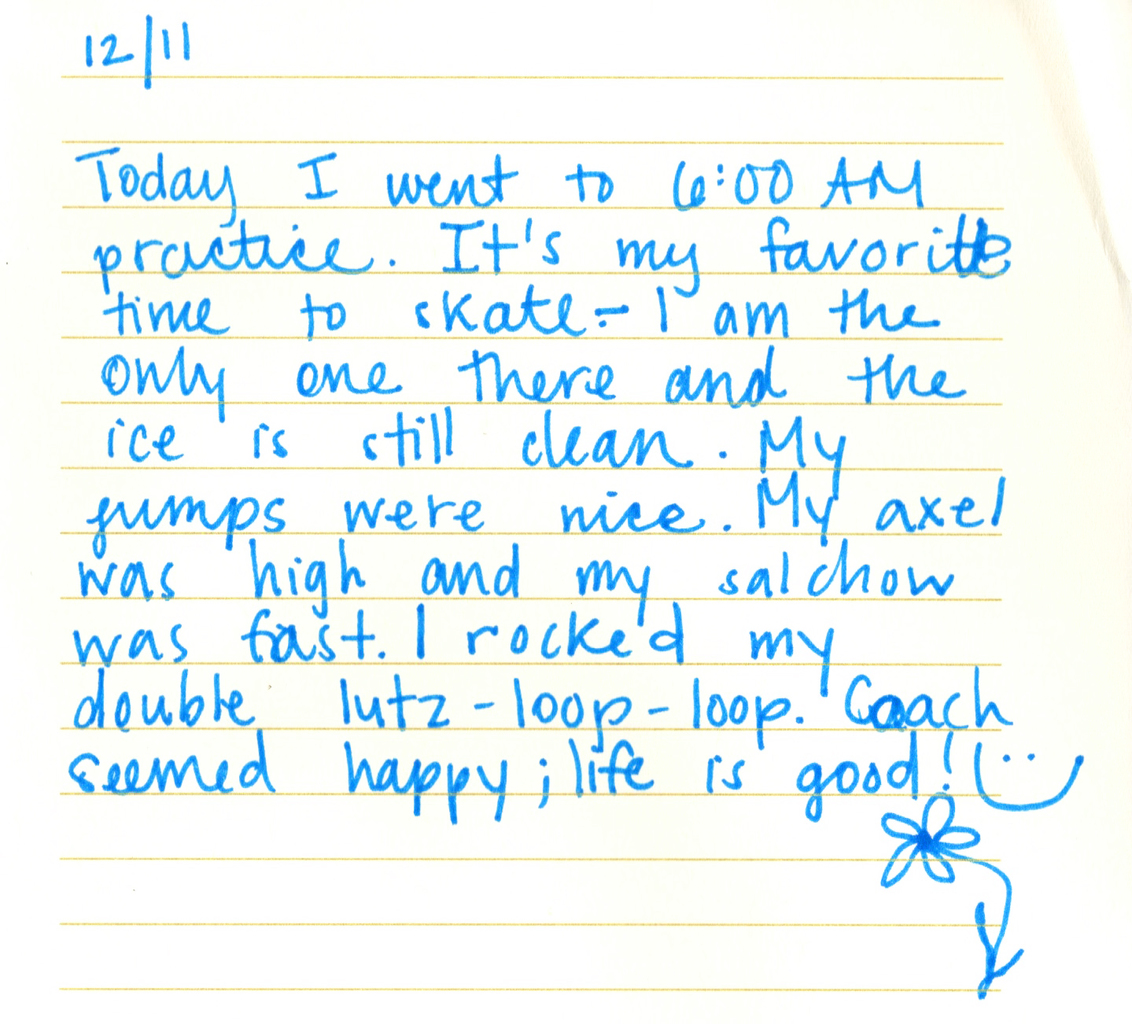 12/11
Today I went to 6:00 AM
practice. It's my favorite
time to skate - I am the
only one there and the
ice is still clean. My
jumps were nice. My axel
was high and my salchow
was fast. I rocked my
double lutz-loop-loop. Coach
seemed happy; life is good!